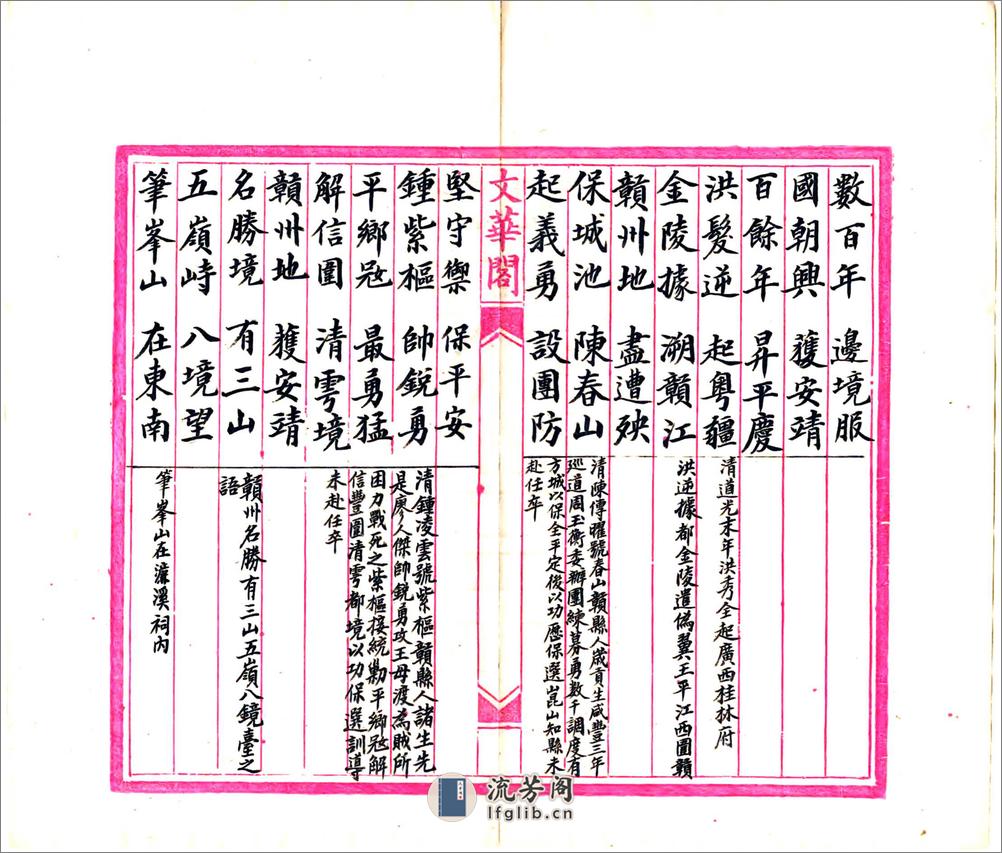 數百年 邊境服
國朝興 獲安靖
百餘年 昇平慶
洪髮逆 起粵疆
清道光末年洪秀全起廣西桂林府
金陵據 溯贛江
洪逆據都金陵遣偽翼王平江西圖贛
贛州地 盡遭殃
保城池 陳春山
清陳傳曜號春山贛縣人歲貢生咸豐三年
廵道周玉衡委辦團練募勇數千調度有
起義勇 設團防
方城以保全平定後以功歷保選崑山知縣未
赴任卒
文華閣
堅守禦 保平安
鍾紫樞 帥銳勇
清鍾凌雲號紫樞贛縣人諸生先
是廖人傑帥銳勇攻王母渡為賊所
平鄉寇 最勇猛
困力戰死之紫樞接統勦平鄉寇解
信豐圍清雩都境以功保選訓導
解信圍 清雩境
未赴任卒
贛州地 獲安靖
名勝境 有三山
贛州名勝有三山五嶺八鏡臺之
語
五嶺峙 八境望
筆峯山 在東南
筆峯山在濂溪祠內
流芳阁
lfglib.cn